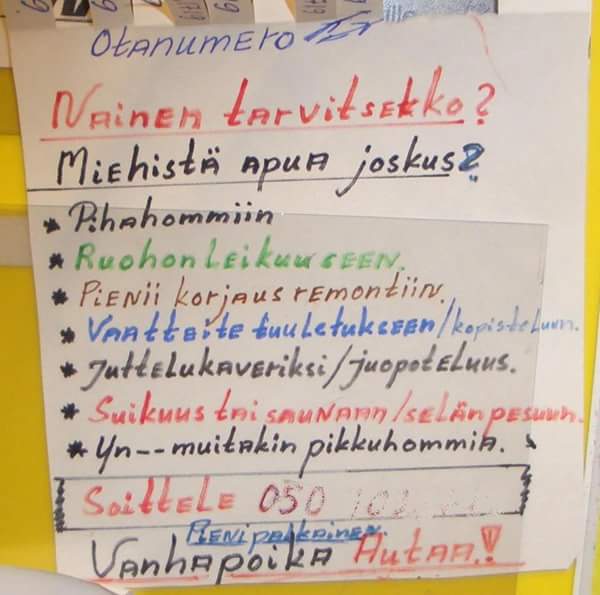 Otanumero
Nainen tarvitsetko?
Miehistä apua joskus?
* Pihahommiin
* Ruohonleikuuseen.
* Pienii korjausremontiin.
* Vaatteite tuuletukseen/kopisteluun.
* Juttelukaveriksi/juopoteluus.
* Suikuus tai saunaan/selänpesuun.
* Yn-- muitakin pikkuhommia.
Soittele 050
Pienipalkkainen
Vanhapoika Autaa!